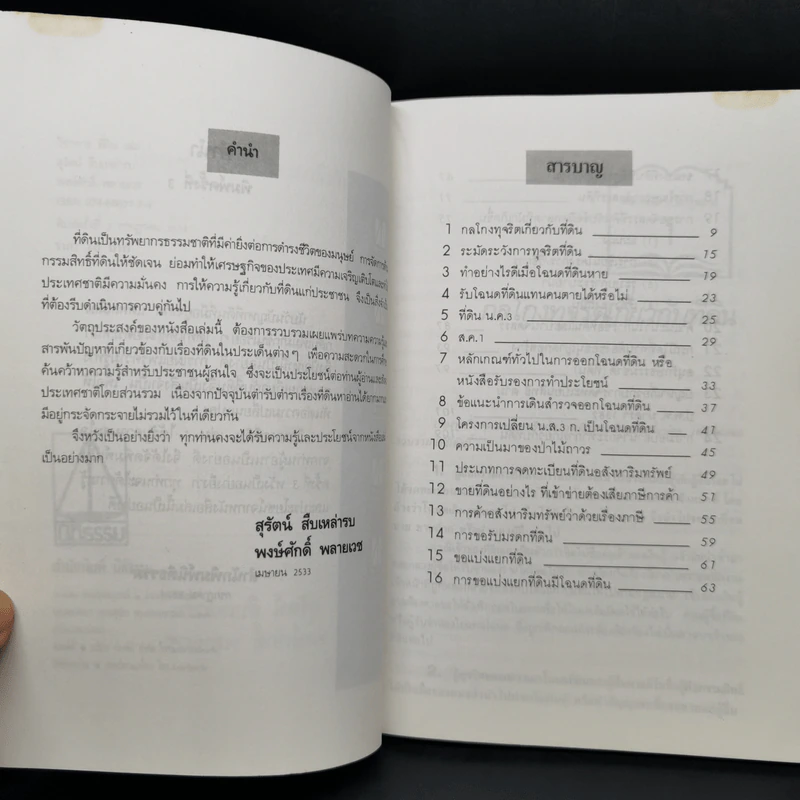 คำนำ
ที่ดินเป็นทรัพยากรธรรมชาติที่มีค่ายิ่งต่อการดำรงชีวิตของมนุษย์ การจัดการ
กรรมสิทธิ์ที่ดินให้ชัดเจน ย่อมทำให้เศรษฐกิจของประเทศมีความเจริญเติบโต
ประเทศชาติมีความมั่นคง การให้ความรู้เกี่ยวกับที่ดินแก่ประชาชน จึงเป็น
ที่ต้องรีบดำเนินการควบคู่กันไป
วัตถุประสงค์ของหนังสือเล่มนี้ ต้องการรวบรวมเผยแพร่บทความความรู้
สารพันปัญหาที่เกี่ยวข้องกับเรื่องที่ดินในประเด็นต่างๆ เพื่อความสะดวกในการ
ค้นคว้าหาความรู้สำหรับประชาชนผู้สนใจ ซึ่งจะเป็นประโยชน์ต่อท่านผู้อ่าน
ประเทศชาติโดยส่วนรวม เนื่องจากปัจจุบันตำรับตำราเรื่องที่ดินหาอ่านได้ยาก
มีอยู่กระจัดกระจายไม่รวมไว้ในที่เดียวกัน
จึงหวังเป็นอย่างยิ่งว่า ทุกท่านคงจะได้รับความรู้และประโยชน์จากหนังสือ
เป็นอย่างมาก
สุรัตน์ สืบเหล่ารบ
พงษ์ศักดิ์ พลายเวช
เมษายน 2533
สารบาญ
1 กลโกงทุจริตเกี่ยวกับที่ดิน 9
2 ระมัดระวังการทุจริตที่ดิน 15
3 ทำอย่างไรดีเมื่อโฉนดที่ดินหาย 19
4 รับโฉนดที่ดินแทนคนตายได้หรือไม่ 23
5 ที่ดิน น.ค.3 25
6 ส.ค.1 29
7 หลักเกณฑ์ทั่วไปในการออกโฉนดที่ดิน หรือ
หนังสือรับรองการทำประโยชน์ 33
8 ข้อแนะนำการเดินสำรวจออกโฉนดที่ดิน 37
9 โครงการเปลี่ยน น.ส.3 ก. เป็นโฉนดที่ดิน 41
10 ความเป็นมาของป่าไม้ถาวร 45
11 ประเภทการจดทะเบียนที่ดินอสังหาริมทรัพย์ 49
12 ขายที่ดินอย่างไร ที่เข้าข่ายต้องเสียภาษีการค้า 51
13 การค้าอสังหาริมทรัพย์ว่าด้วยเรื่องภาษี 55
14 การขอรับมรดกที่ดิน 59
15 ขอแบ่งแยกที่ดิน 61
16 การขอแบ่งแยกที่ดินมีโฉนดที่ดิน 63